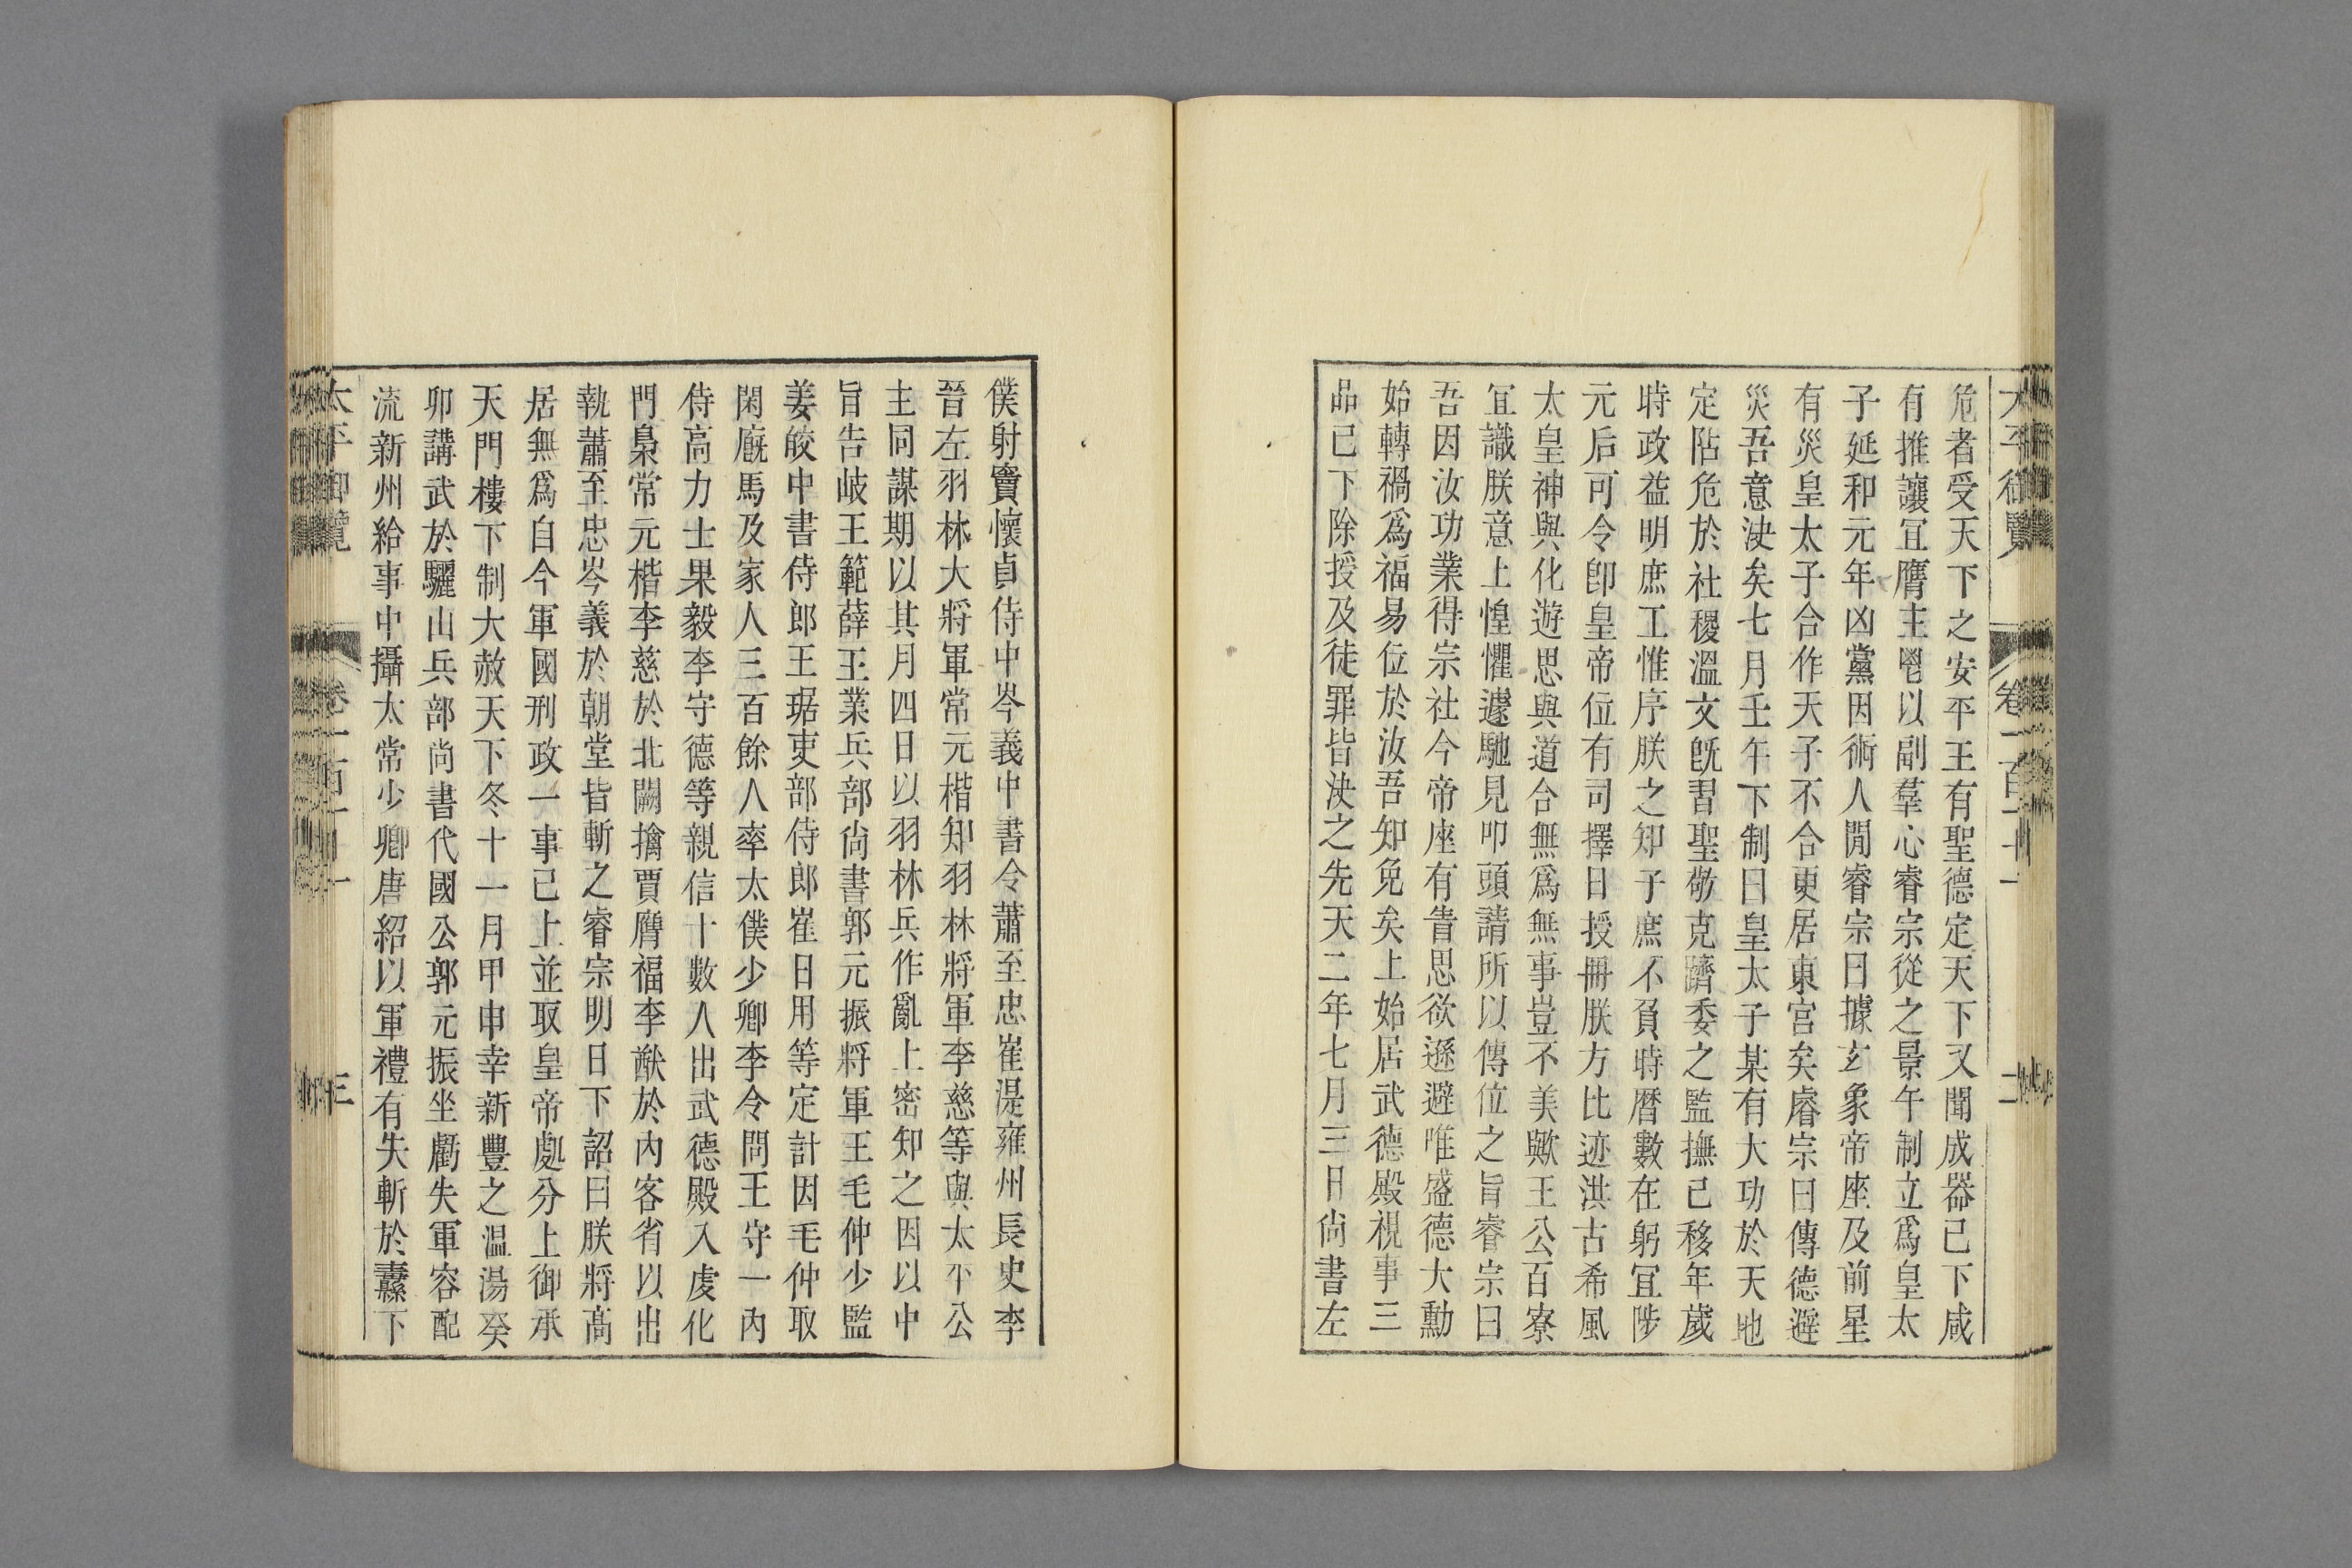 危者受天下之安平王有聖德定天下又聞成器已下咸
有推讓冝膺主鬯以副羣心睿宗從之景午制立爲皇太
子延和元年凶黨因術人聞睿宗曰據玄象帝座及前星
有災皇太子合作天子不合更居東宮矣睿宗曰傳德避
災吾意決矣七月壬午下制曰皇太子某有大功於天地
定阽危於社稷溫文旣習聖敬克躋委之監撫已移年歲
時政益明庶工惟序朕之知子庶不負時曆數在躬冝陟
元后可令卽皇帝位有司擇日授冊朕方比迹洪古希風
太皇神與化遊思與道合無爲無事豈不美歟王公百寮
冝識朕意上惶懼遽馳見叩頭請所以傳位之旨睿宗曰
吾因汝功業得宗社今帝座有眚思欲遜避唯盛德大勳
始轉禍爲福易位於汝吾知免矣上始居武德殿視事三
品已下除授及徒罪皆決之先天二年七月三日尙書左
僕射竇懷貞侍中岑義中書令蕭至忠崔湜雍州長史李
晉左羽林大將軍常元楷知羽林將軍李慈等與太平公
主同謀期以其月四日以羽林兵作亂上密知之因以中
旨告岐王範薛王業兵部尙書郭元振將軍王毛仲少監
姜皎中書侍郎王琚吏部侍郎崔日用等定計因毛仲取
閑廐馬及家人三百餘人率太僕少卿李令問王守一內
侍高力士果毅李守德等親信十數人出武德殿入虔化
門梟常元楷李慈於北闕擒賈膺福李猷於內客省以出
執蕭至忠岑義於朝堂皆斬之睿宗明日下詔曰朕將高
居無爲自今軍國刑政一事已上並取皇帝處分上御承
天門樓下制大赦天下冬十一月甲申幸新豐之溫湯癸
卯講武於驪山兵部尙書代國公郭元振坐虧失軍容配
流新州給事中攝太常少卿唐紹以軍禮有失斬於纛下
太平御覽
三